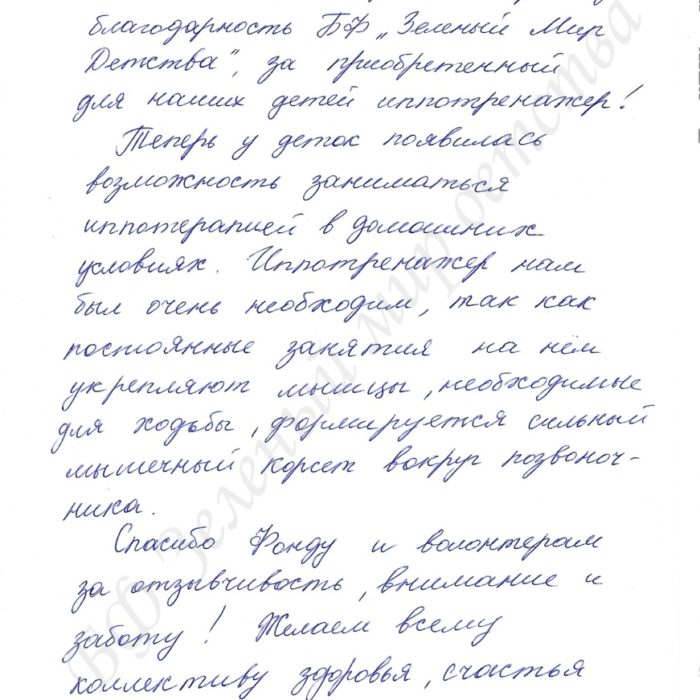 благодарность БФ „Зеленый Мир
Детства", за приобретенный
для наших детей иппотренажер!
Теперь у деток появилась
возможность заниматься
иппотерапией в домашних
условиях. Иппотренажер нам
был очень необходим, так как
постоянные занятия на нём
укрепляют мышцы, необходимые
для ходьбы, формируется сильный
мышечный корсет вокруг позвоноч-
ника.
Спасибо Фонду и волонтерам
за отзывчивость, внимание и
заботу! Желаем всему
коллективу здоровья, счастья
БФ Зеленый мир детства